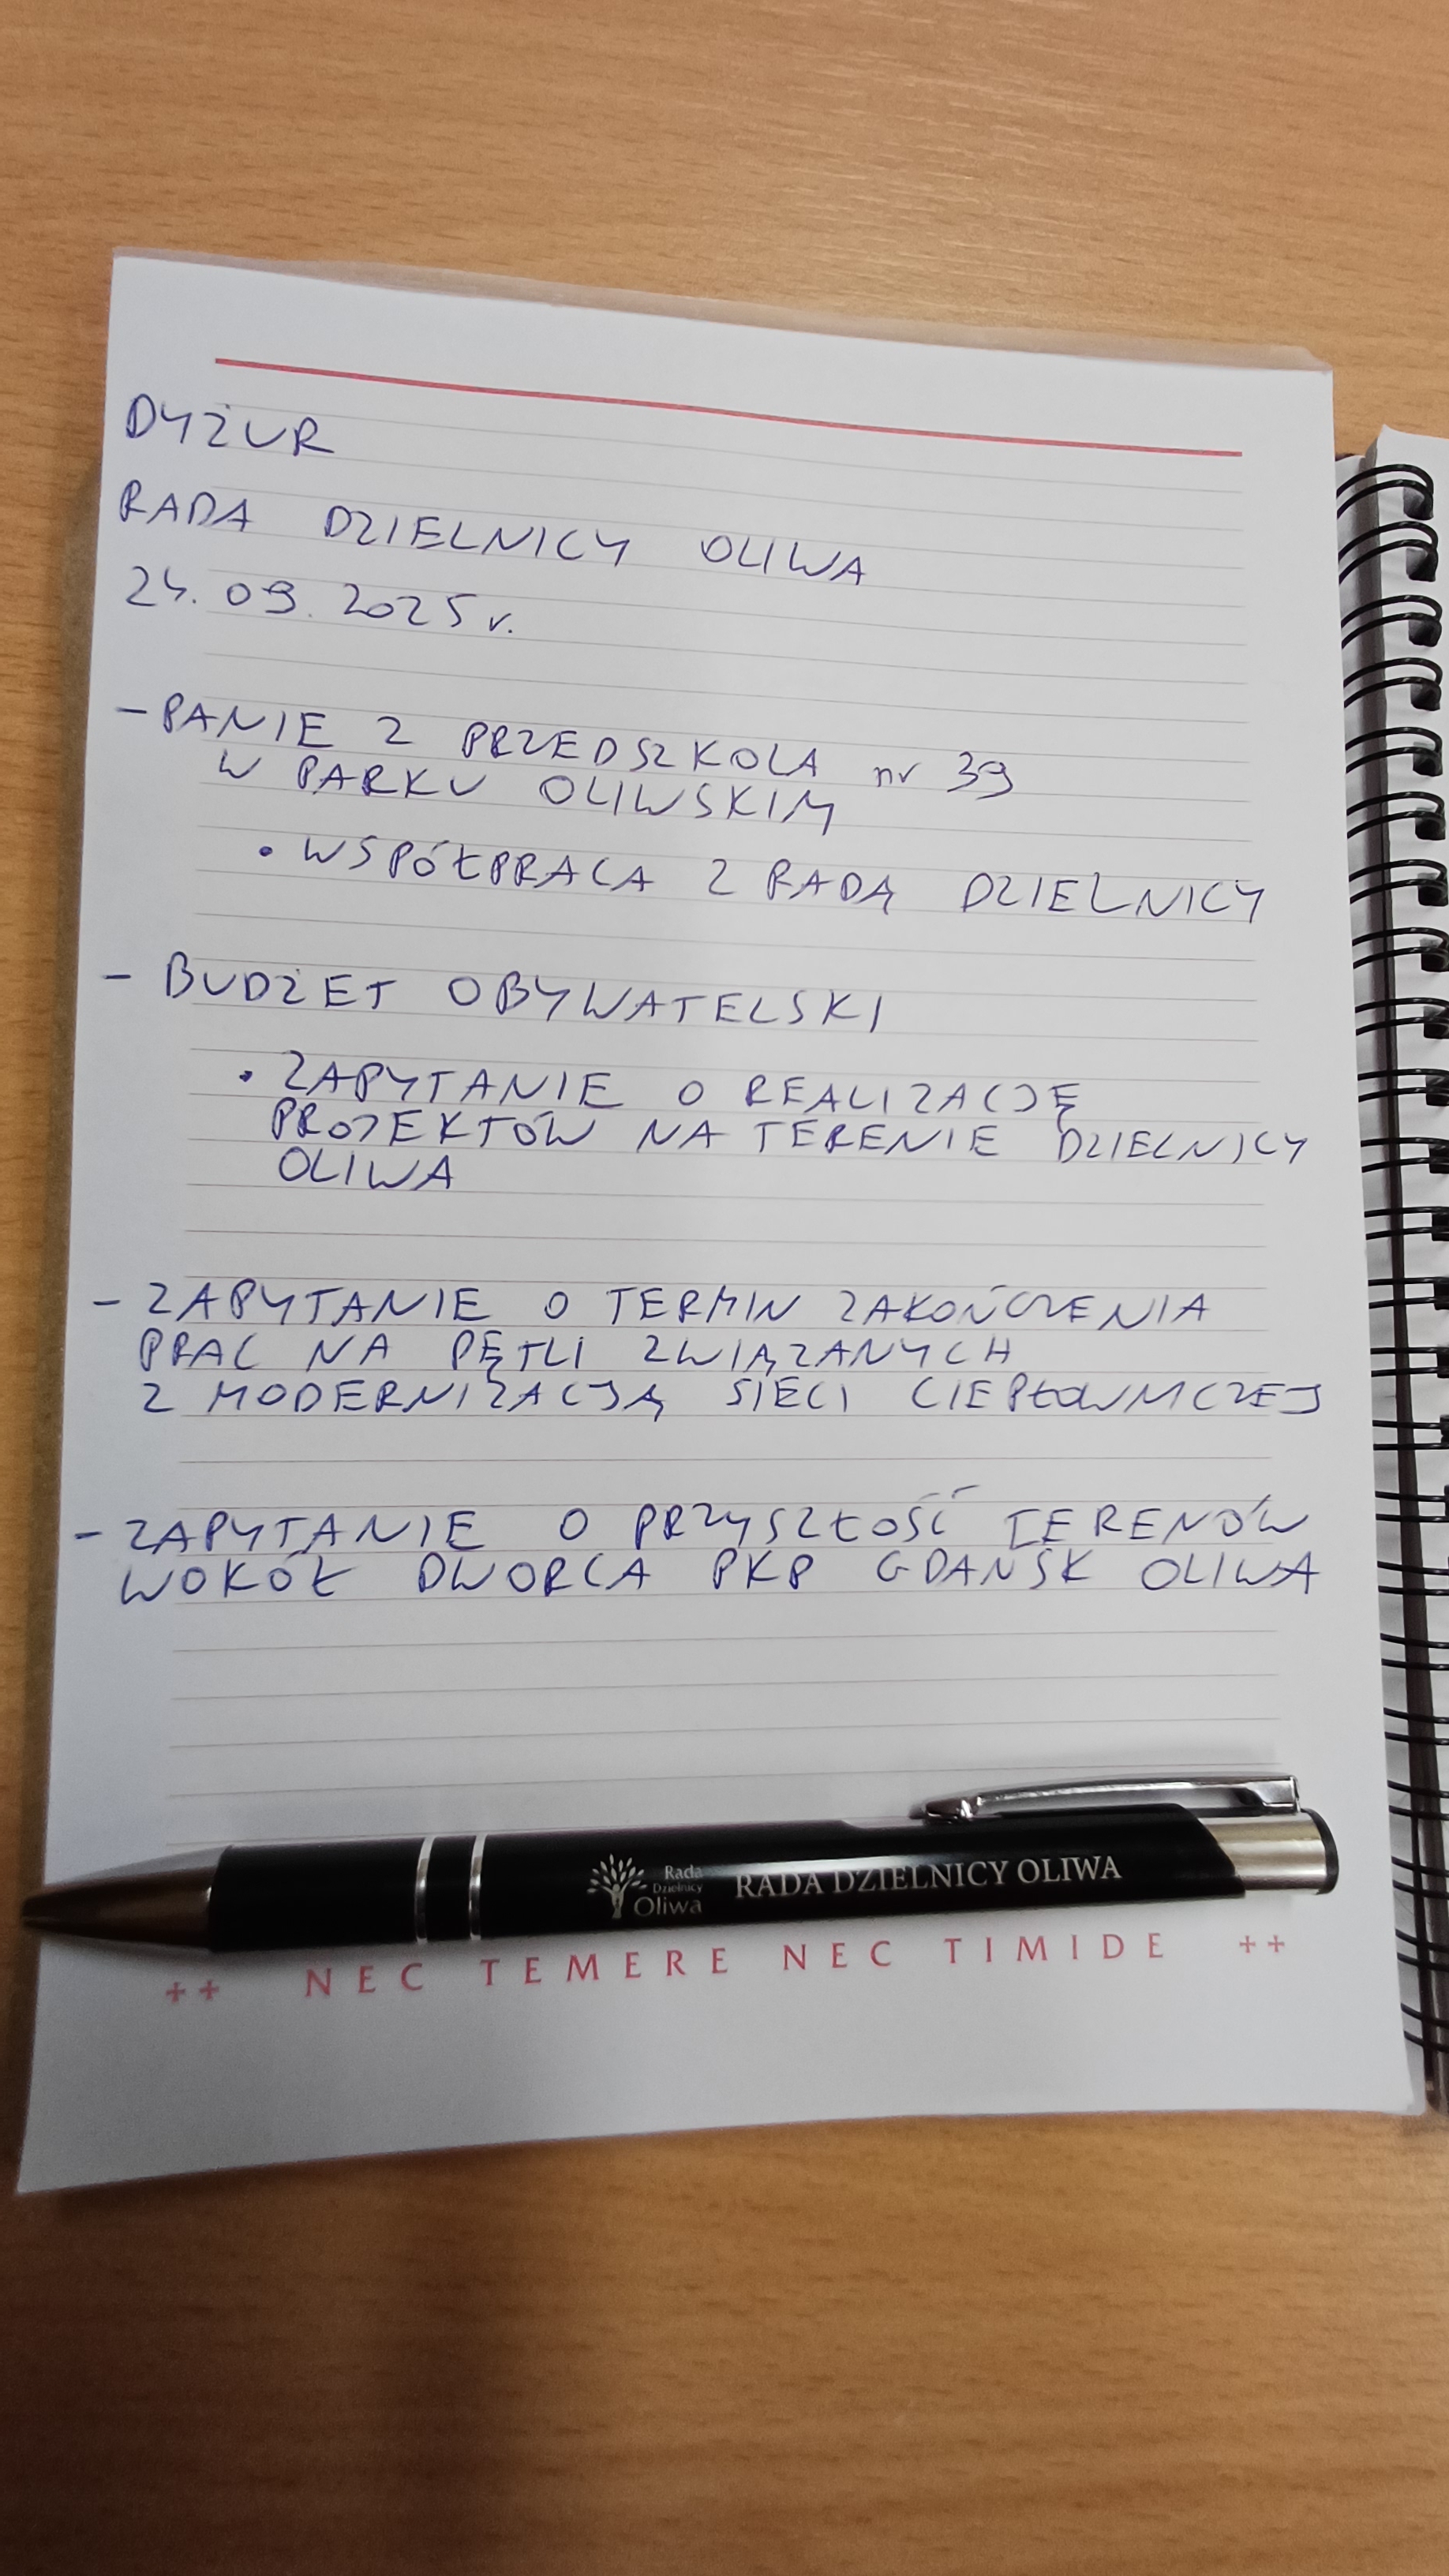 DYŻUR
RADA DZIELNICY OLIWA
24.09.2025 r.
- PANIE Z PRZEDSZKOLA nr 39
W PARKU OLIWSKIM
• WSPÓŁPRACA Z RADĄ DZIELNICY
- BUDŻET OBYWATELSKI
• ZAPYTANIE O REALIZACJĘ
PROJEKTÓW NA TERENIE DZIELNICY
OLIWA
- ZAPYTANIE O TERMIN ZAKOŃCZENIA
PRAC NA PĘTLI ZWIĄZANYCH
Z MODERNIZACJĄ SIECI CIEPŁOWNICZEJ
- ZAPYTANIE O PRZYSZŁOŚĆ TERENÓW
WOKÓŁ DWORCA PKP GDAŃSK OLIWA
Rada
Dzielnicy
Oliwa
RADA DZIELNICY OLIWA
++ NEC TEMERE NEC TIMIDE ++